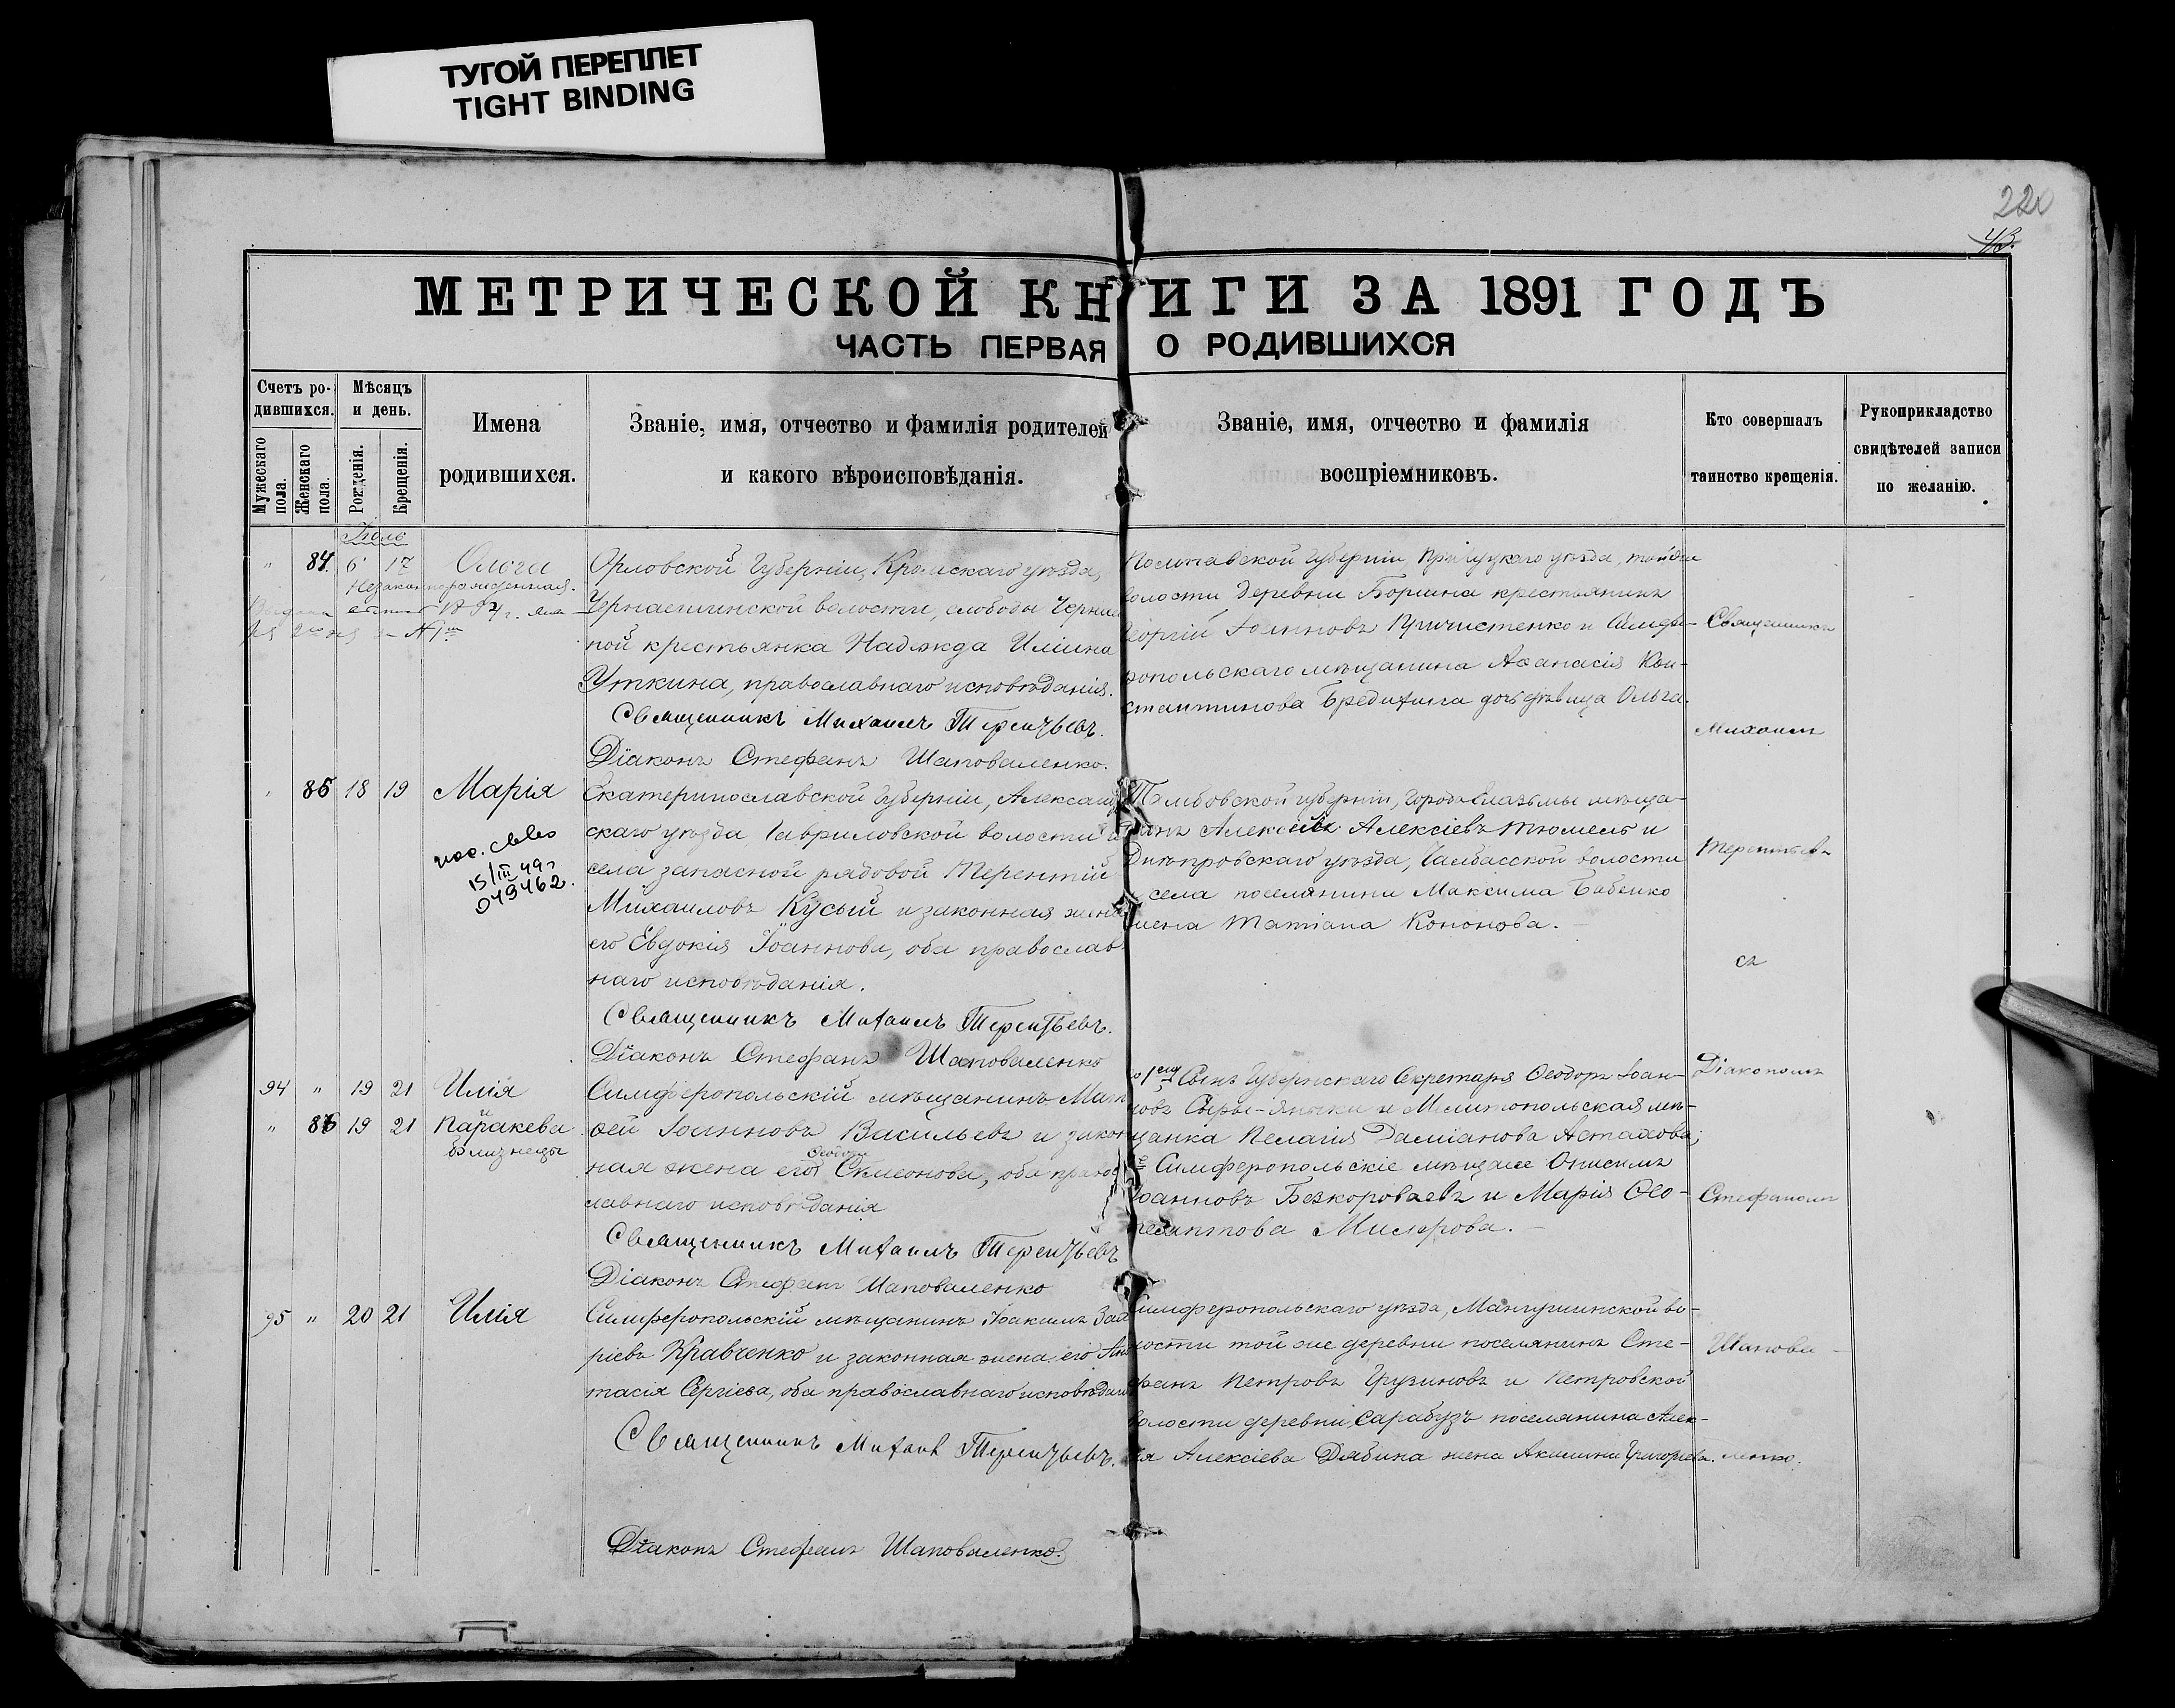 ТУГОЙ ПЕРЕПЛЕТ
TIGHT BINDING
220
43.
МЕТРИЧЕСКОЙ КНИГИ ЗА 1891 ГОДЪ
ЧАСТЬ ПЕРВАЯ О РОДИВШИХСЯ
Счетъ ро-
дившихся.
Мужескаго пола.
Женскаго пола.
Мѣсяцъ
и день.
Рожденія.
Крещенія.
Имена
родившихся.
Званіе, имя, отчество и фамилія родителей
и какого вѣроисповѣданія.
Званіе, имя, отчество и фамилія
воспріемниковъ.
Кто совершалъ
таинство крещенія.
Рукоприкладство
свидѣтелей записи
по желанію.
Іюль
" 84. 6 17 Ольга
Незаконнорожденная.
Орловской Губерніи, Кромскаго уѣзда,
волости, слободы
ной крестьянка Надежда Иліина
Уткина, православнаго исповѣданія.
Священникъ Михаилъ Терентьевъ.
Діаконъ Стефанъ Шаповаленко.
Полтавской губерніи Прилуцкаго уѣзда, той же
волости деревни крестьянинъ
Георгій Іоанновъ и Симфе-
ропольскаго мѣщанина Аѳанасія Кон-
стантинова Бредихина дочь дѣвица Ольга.
85 18 19 Марія
15/III 49г
049462.
Екатеринославской губерніи, Александ
скаго уѣзда Гавриловской волости и
села запасной рядовой Терентій
Михаиловъ Кусый и законная жена
его Евдокія Іоаннова, оба православ-
наго исповѣданія.
Священникъ Михаилъ Терентьевъ.
Діаконъ Стефанъ Шаповаленко
Тамбовской губерніи, города мѣща-
нинъ Алексѣй Алексіевъ и
Днѣпровскаго уѣзда, Чалбасской волости
села поселянина Максима Бабенко
жена Татіана Кононова.
94 " 19 21 Илія
" 86 19 21 Параскева
близнецы
Симферопольскій мѣщанинъ Мат
ѳей Іоанновъ Васильевъ и закон
ная жена его Симеонова, оба правос
лавнаго исповѣданія
Священникъ Михаилъ Терентьевъ
Діаконъ Стефанъ Шаповаленко
Сынъ Губернскаго Секретаря Ѳеодоръ Іоан-
новъ и Мелитопольская мѣ-
щанка Пелагія Даміанова Астахова;
Симферопольскіе мѣщане Онисимъ
Іоанновъ Безкороваевъ и Марія Ѳео-
Милерова.
95 " 20 21 Илія
Симферопольскій мѣщанинъ Іоакимъ Заха
ріевъ Кравченко и законная жена его Ана
тасія Сергіева, оба православнаго исповѣдан
Священникъ Михаилъ Терентьевъ.
Діаконъ Стефанъ Шаповаленко.
Симферопольскаго уѣзда, Мангушинской во-
лости той же деревни поселянинъ Сте-
фанъ Петровъ Грузиновъ и Петровской
волости деревни Сарабузъ поселянина Алек-
сія Алексіева Дябина жена Акилина Григоріева.
Священникъ
Михаилъ
Терентьевъ
съ
Діакономъ
Стефаномъ
Шапова-
ленко.